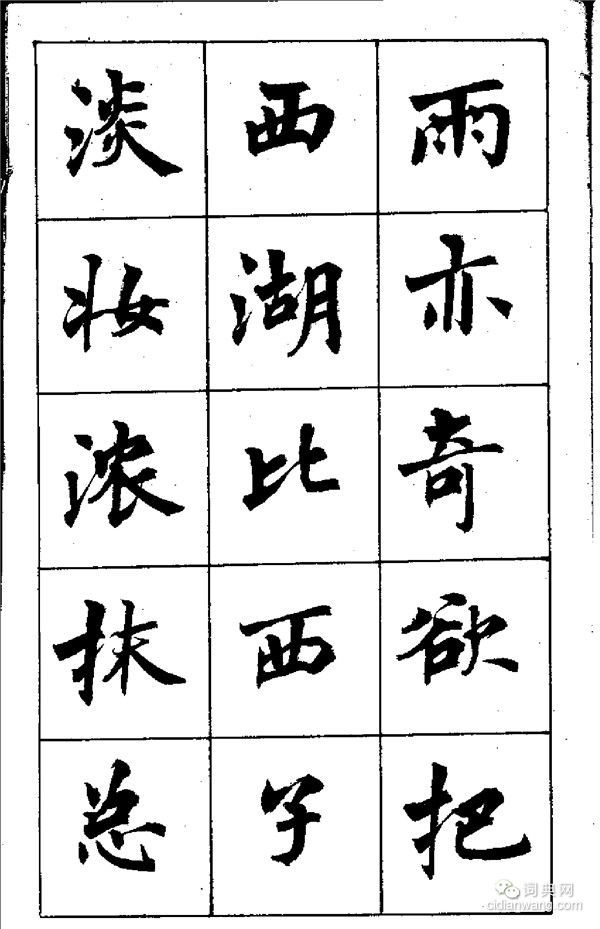 雨亦奇欲把
西湖比西子
淡妆浓抹总
词典网
cidianwang.com